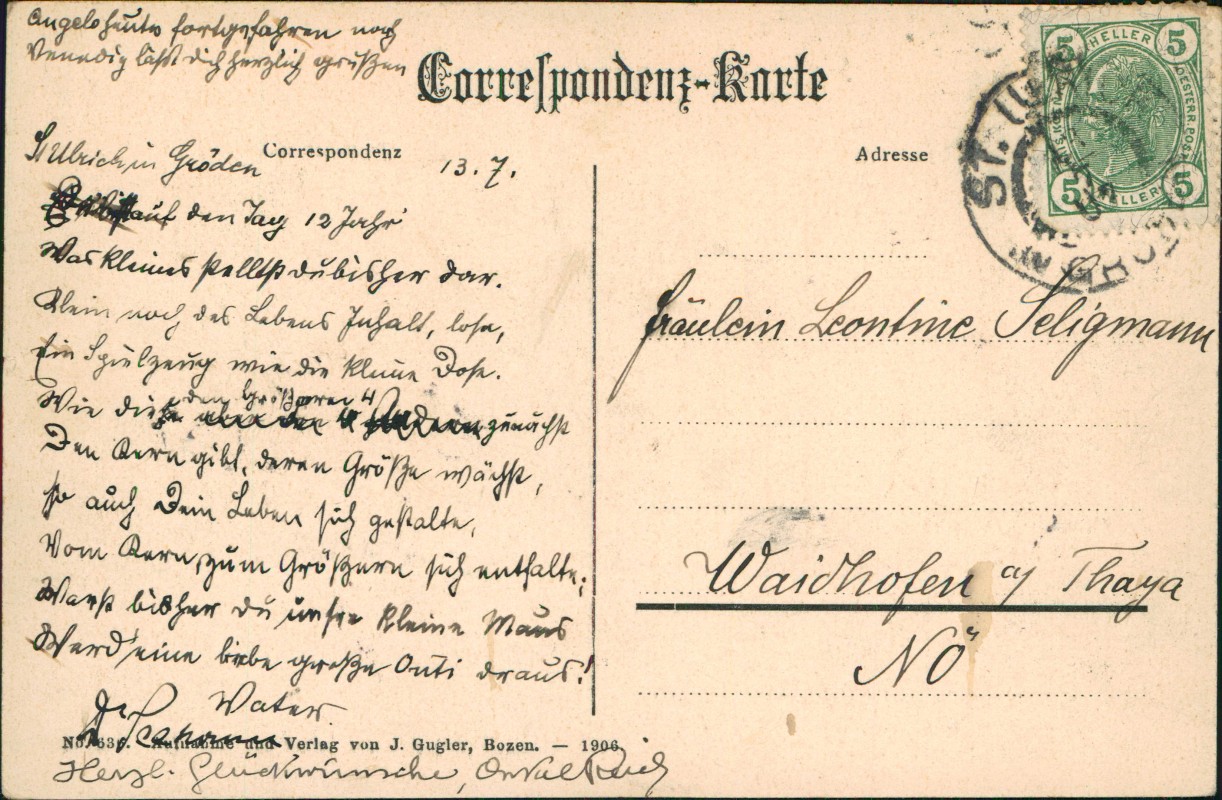 Angelo heute fortgefahren nach
Venedig läßt dich herzlich grüßen
Correspondenz-Karte
St Ulrich in Gröden
Correspondenz
13. 7.
Adresse
auf den Tag 12 Jahr
Was kleines stelltst du bisher dar.
Klein noch des Lebens Inhalt, lose,
Ein Spielzeug wie die kleine Dose.
den Größeren 4
Wie diese zunächst
Den Kern gibt, deren Größe wächst,
so auch Dein Leben sich gestalte,
Vom Kern, zum Größern sich entfalte;
Warst bisher du unsre kleine Maus
Werd eine liebe große Onti draus!
Vater
No. 636. Aufnahme und Verlag von J. Gugler, Bozen. — 1906.
Herzl. Glückwünsche, Onkel
5 HELLER 5
5 HELLER 5
ST. UL
Fräulein Leontine Seligmann
Waidhofen a/ Thaya
NÖ